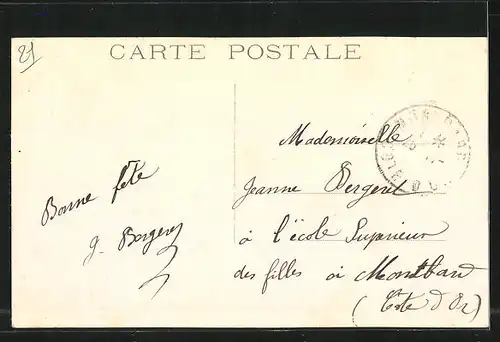 21
CARTE POSTALE
Mademoiselle
Jeanne Bergeret
à l'école Supérieur
des filles à Montbard
(Côte d'Or)
Bonne fête
J. Bergeret